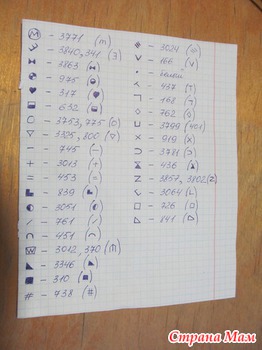 Ⓜ - 3771 (m)
3 - 3840,341 (3)
⧗ - 3863 (⧗)
- 975
♥ - 317 (♥)
- 632
○ - 3753,775 (○)
▽ - 3325,800 (▽)
- - 745 (-)
+ - 3013 (+)
= - 453 (=)
▙ - 839 (▙)
◐ - 3051 (◐)
/ - 761 (/)
∩ - 451 (∩)
W - 3012,370 (M)
◣ - 3346 (◣)
■ - 310 (■)
# - 738 (#)
- 3024
v - 166 (v)
•
- 437 (T)
- 168
◇ - 762 (◇)
⊔ - 3799 (401)
x - 919 (x)
⊃ - 3781 (⊃)
- 436
Z - 3857,3802 (Z)
L - 3064 (L)
□ - 726 (□)
- 841
Страна Мам